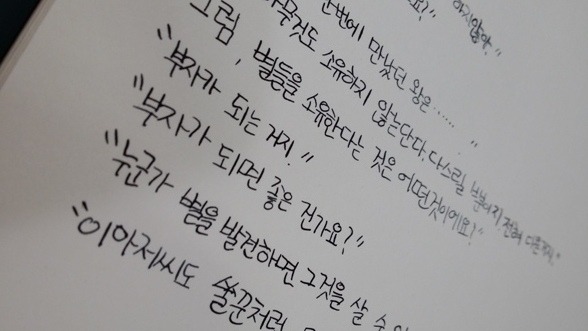 하지않아."
전번에 만났던 왕은......"
소유하지 않는단다. 다스릴 뿐이지. 전혀 다른거지."
그럼, 별들을 소유한다는 것은 어떤것이에요?"
"부자가 되는 거지."
"부자가 되면 좋은 건가요?"
"누군가 별을 발견하면 그것을 살 수
"이 아저씨도 술꾼처럼